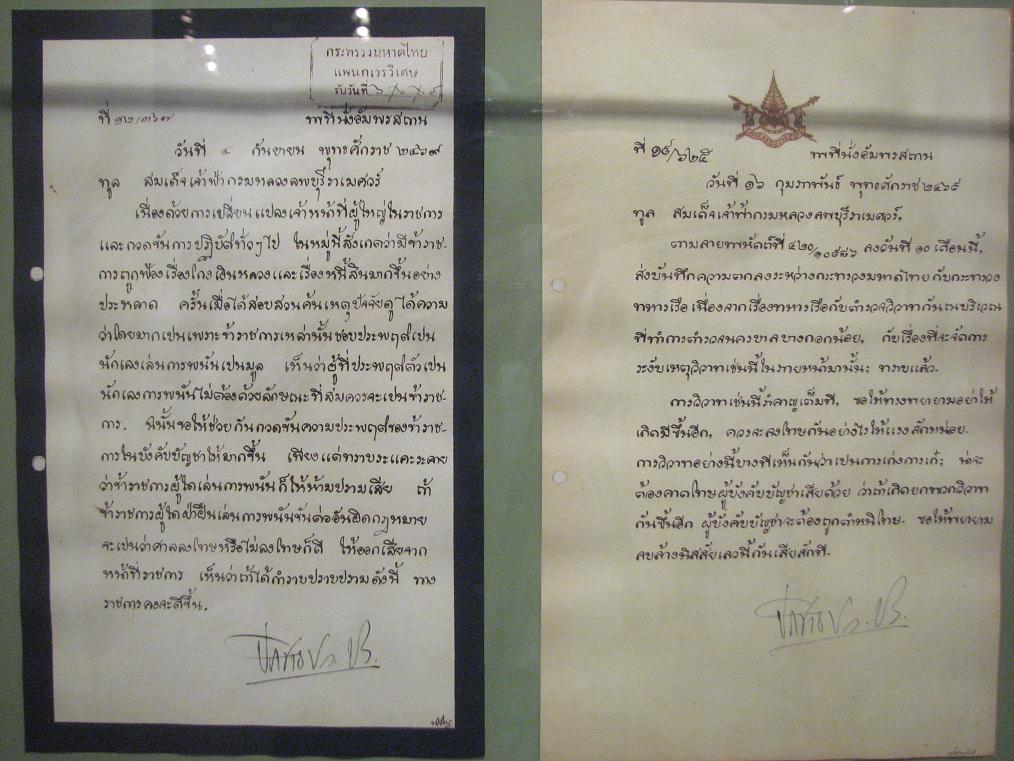 กระทรวงมหาดไทย
แผนกเวรวิเศษ
รับวันที่
ที่
พทีนั่งอัมพรสถาน
วันที่ ๔ กันยายน พุทธศักราช ๒๔๖๙
ทูล สมเด็จเจ้าฟ้ากรมหลวงลพบุรีราเมศวร์
เนื่องด้วยการเปลี่ยนแปลงเจ้าหน้าที่ผู้ใหญ่ในราชการ
และกวดขันการปฏิบัติทั่วๆไป ในหมู่นี้สังเกตว่ามีข้าราช-
การถูกฟ้องเรื่องโกงเงินหลวงและเรื่องหนี้สินมากขึ้นอย่าง
ประหลาด ครั้นเมื่อได้สอบสวนค้นเหตุปัจจัยดูได้ความ
ว่าโดยมากเปนเพราะข้าราชการเหล่านั้นชอบประพฤติเปน
นักเลงเล่นการพนันเปนมูล เห็นว่าผู้ที่ประพฤติตัวเปน
นักเลงการพนันไม่ต้องด้วยลักษณะที่สมควรจะเปนข้าราช-
การ. ฉนั้นขอให้ช่วยกันกวดขันความประพฤติของข้าราช-
การในบังคับบัญชาให้มากขึ้น เพียงแต่ทราบระแคะระคาย
ว่าข้าราชการผู้ใดเล่นการพนันก็ให้ห้ามปรามเสีย ถ้า
ข้าราชการผู้ใดฝ่าฝืนเล่นการพนันขันต่ออันผิดกฎหมาย
จะเปนว่าศาลลงโทษหรือไม่ลงโทษก็ดี ให้ออกเสียจาก
หน้าที่ราชการ เห็นว่าถ้าได้กำราบปราบปรามดังนี้ ทาง
ราชการคงจะดีขึ้น.
ประชาธิปก ปร.
ที่ ๑๙/๖๒๕
พทีนั่งอัมพรสถาน
วันที่ ๑๖ กุมภาพันธ์ พุทธศักราช ๒๔๖๙
ทูล สมเด็จเจ้าฟ้ากรมหลวงลพบุรีราเมศวร์,
ตามลายพหัตถ์ที่ ๔๒๐/๑๐๙๘๖ ลงวันที่ ๑๐ เดือนนี้,
ส่งบันทึกความตกลงระหว่างกระทรวงมหาดไทยกับกระทรวง
ทหารเรือ เนื่องจากเรื่องทหารเรือกับตำรวจวิวาทกันณบริเวณ
ที่ทำการตำรวจนครบาลบางกอกน้อย, กับเรื่องที่จะจัดการ
ระงับเหตุวิวาทเช่นนี้ในภายหน้านั้น: ทราบแล้ว.
การวิวาทเช่นนี้รำคาญเต็มที, ขอให้ทรงพยายามอย่าให้
เกิดมีขึ้นอีก, ควรจะลงโทษกันอย่างไรให้แรงสักหน่อย.
การวิวาทอย่างนี้บางทีเห็นกันว่าเปนการเก่งการเก๋; น่าจะ
ต้องคาดโทษผู้บังคับบัญชาเสียด้วย ว่าถ้าเกิดยกพวกวิวาท
กันขึ้นอีก ผู้บังคับบัญชาจะต้องถูกตำหนิโทษ. ขอให้พยายาม
ลบล้างนิสสัยเลวนี้กันเสียสักที.
ประชาธิปก ปร.